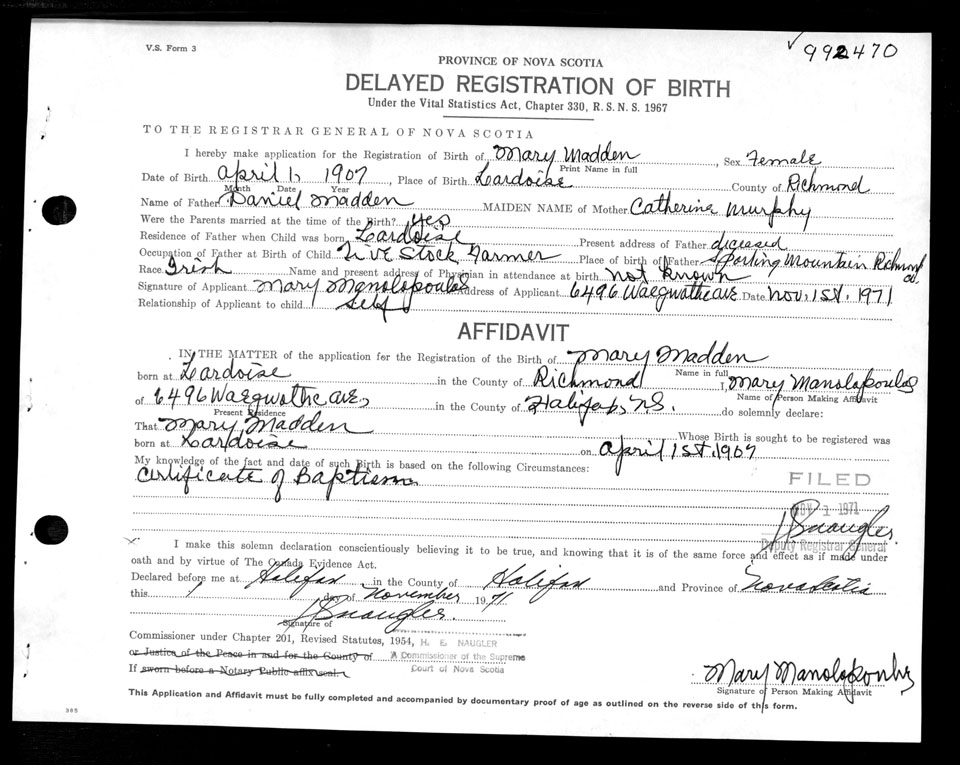 V.S. Form 3
992470
PROVINCE OF NOVA SCOTIA
DELAYED REGISTRATION OF BIRTH
Under the Vital Statistics Act, Chapter 330, R. S. N. S. 1967
TO THE REGISTRAR GENERAL OF NOVA SCOTIA
I hereby make application for the Registration of Birth of Mary Madden, Sex Female
Print Name in full
Date of Birth April 1, 1907, Place of Birth Lardoise County of Richmond
Month Date Year
Name of Father Daniel Madden MAIDEN NAME of Mother Catherine Murphy
Were the Parents married at the time of the Birth? Yes
Residence of Father when Child was born Lardoise Present address of Father diceased
Occupation of Father at Birth of Child Live Stock Farmer Place of birth of Father Sporting Mountain Richmond Co.
Race Irish Name and present address of Physician in attendance at birth not known
Signature of Applicant Mary Manolopoulos Address of Applicant 6496 Waegwoltic Ave Date Nov, 1st, 1971
Relationship of Applicant to child Self
AFFIDAVIT
IN THE MATTER of the application for the Registration of the Birth of Mary Madden
Name in full
born at Lardoise in the County of Richmond I, Mary Manolopoulos
Name of Person Making Affidavit
of 6496 Waegwoltic Ave, in the County of Halifax, N.S. do solemnly declare:
Present Residence
That Mary Madden Whose Birth is sought to be registered was
born at Lardoise on April 1st, 1907
My knowledge of the fact and date of such Birth is based on the following Circumstances:
Certificate of Baptism
FILED
NOV 1 1971
HENaugler
Deputy Registrar General
I make this solemn declaration conscientiously believing it to be true, and knowing that it is of the same force and effect as if made under
oath and by virtue of The Canada Evidence Act.
Declared before me at Halifax in the County of Halifax and Province of Nova Scotia
this 1 day of November 1971
HENaugler.
Signature of
Commissioner under Chapter 201, Revised Statutes, 1954, H. E. NAUGLER
or Justice of the Peace in and for the County of A Commissioner of the Supreme
If sworn before a Notary Public affix seal. Court of Nova Scotia
Mary Manolopoulos
Signature of Person Making Affidavit
This Application and Affidavit must be fully completed and accompanied by documentary proof of age as outlined on the reverse side of this form.
385